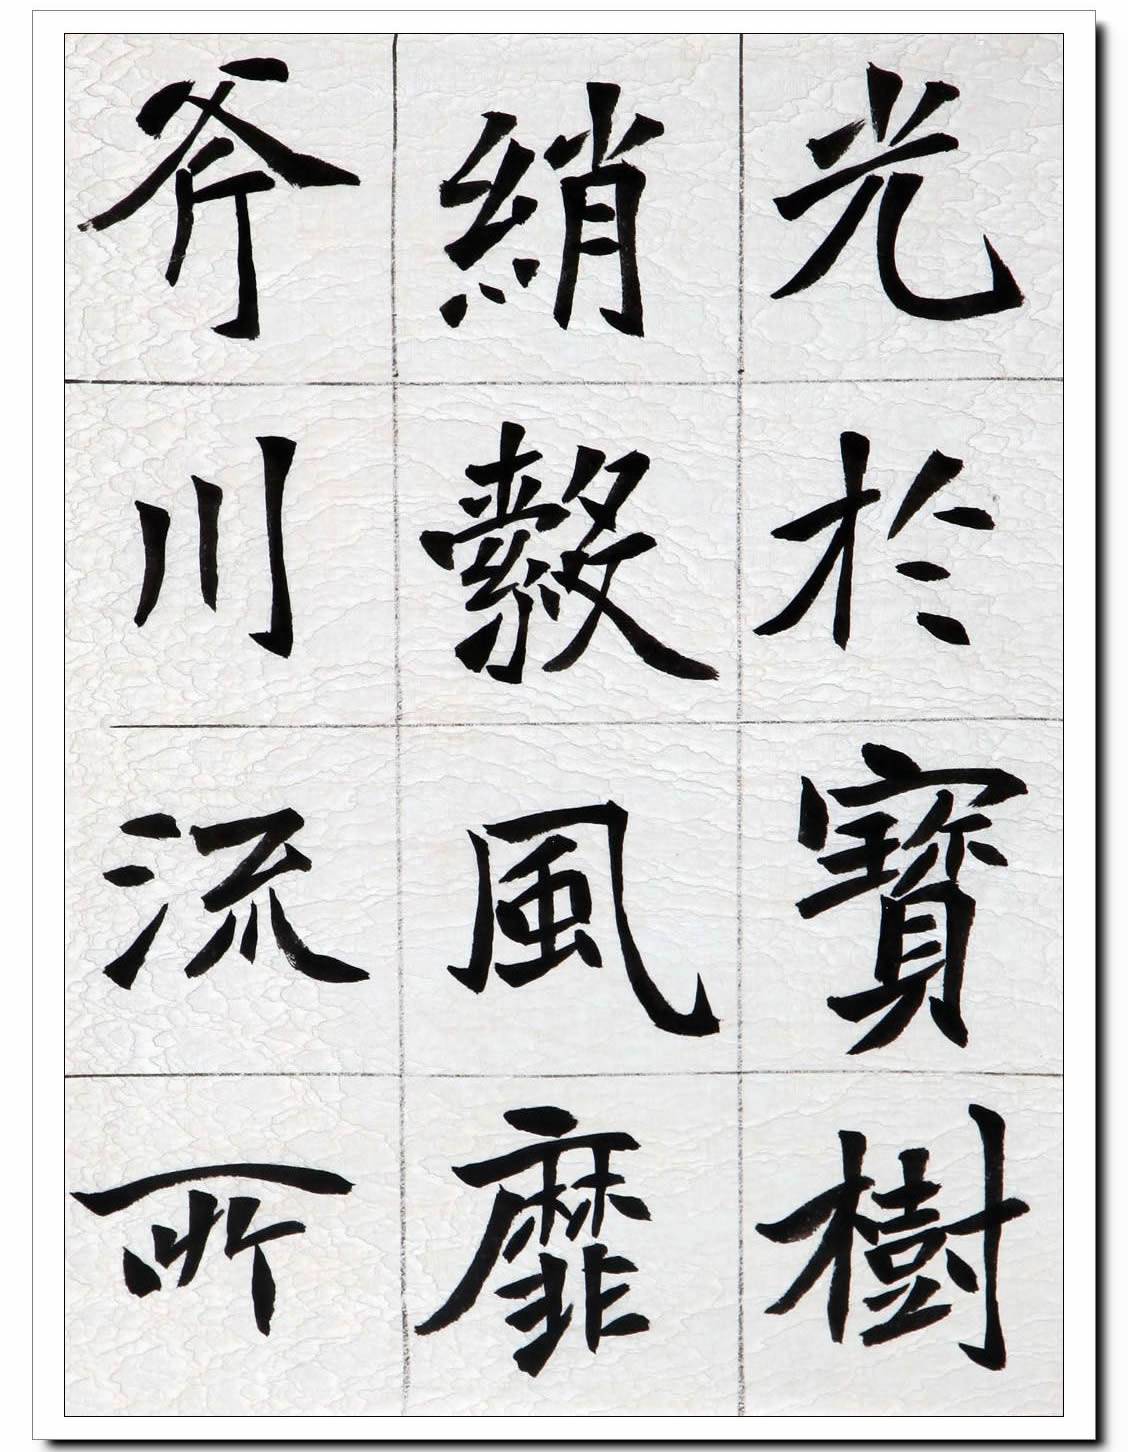 光於寶樹
綃縠風靡
斧川流所